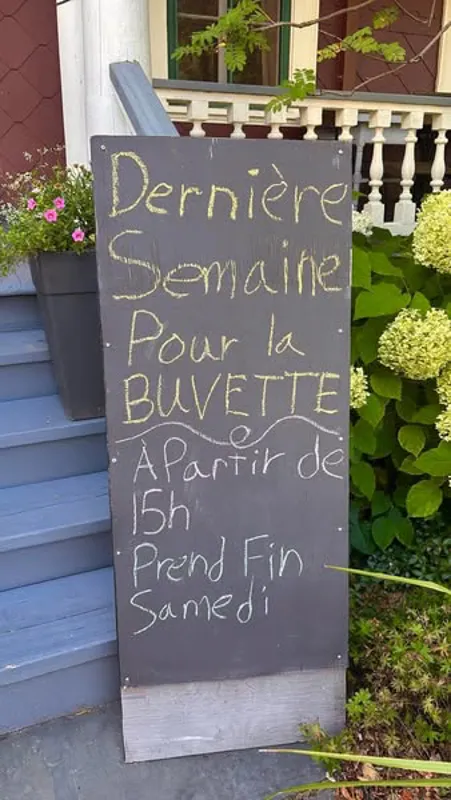 Dernière
Semaine
Pour la
BUVETTE
À Partir de
15h
Prend Fin
Samedi